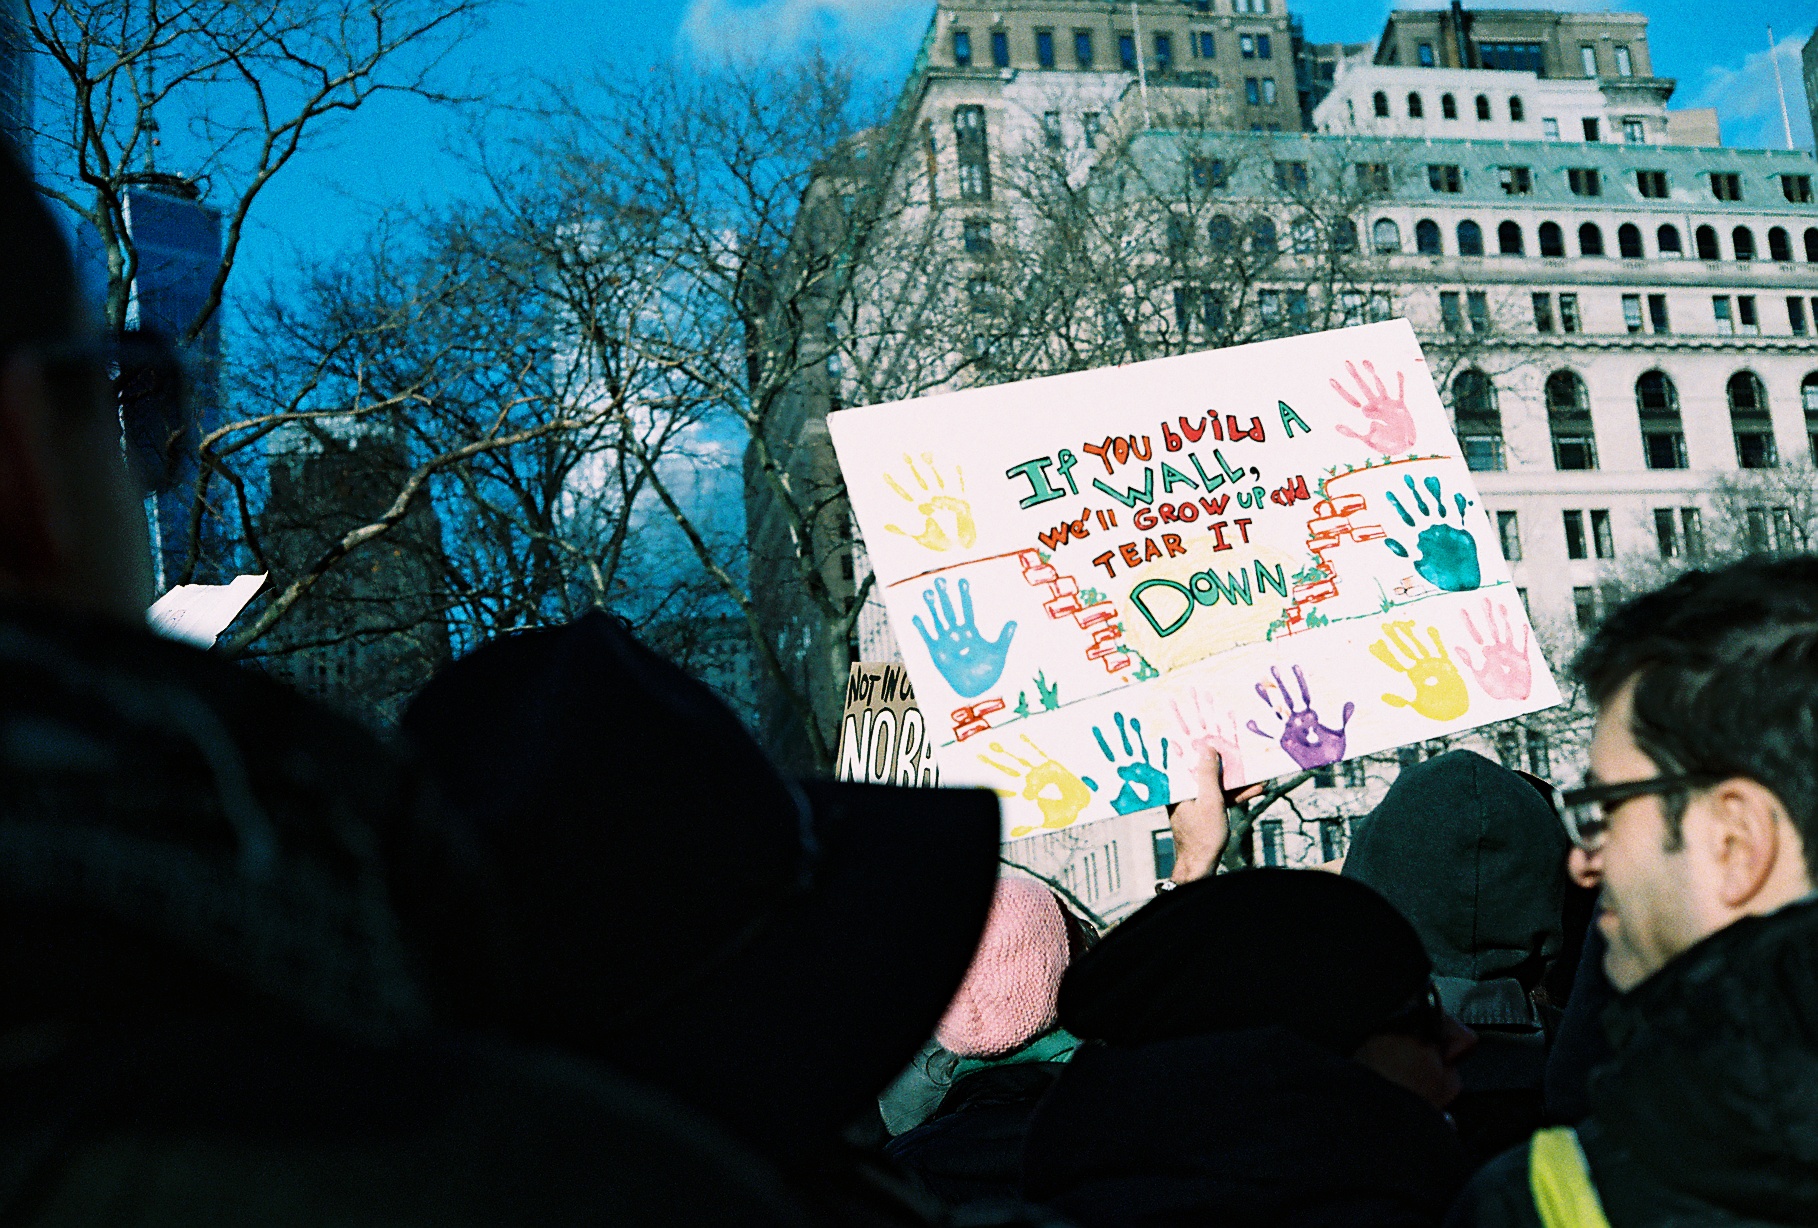 If YOU bUiLd A
WALL,
we'll GROW UP and
TEAR IT
DOWN
NOT IN